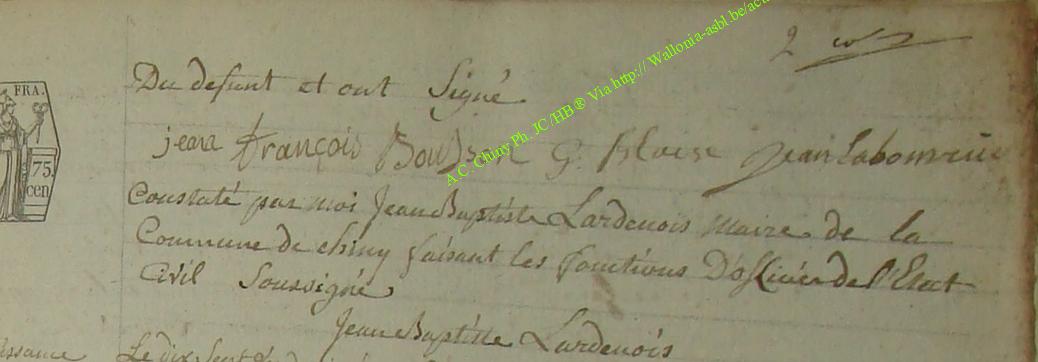 2
Du defunt et ont Signé
jeane françois G. Bloise jean labouverie
Constaté par moi Jean Baptiste Lardenois Maire de la
Commune de Chiny faisant les fonctions D'officier de l'Etat
Civil Soussigné
Jean Baptiste Lardenois
Le dix Sept
FRA.
75.
cen
A.C. Chiny Ph. JC/HB® Via http:// Wallonia-asbl.be/ac